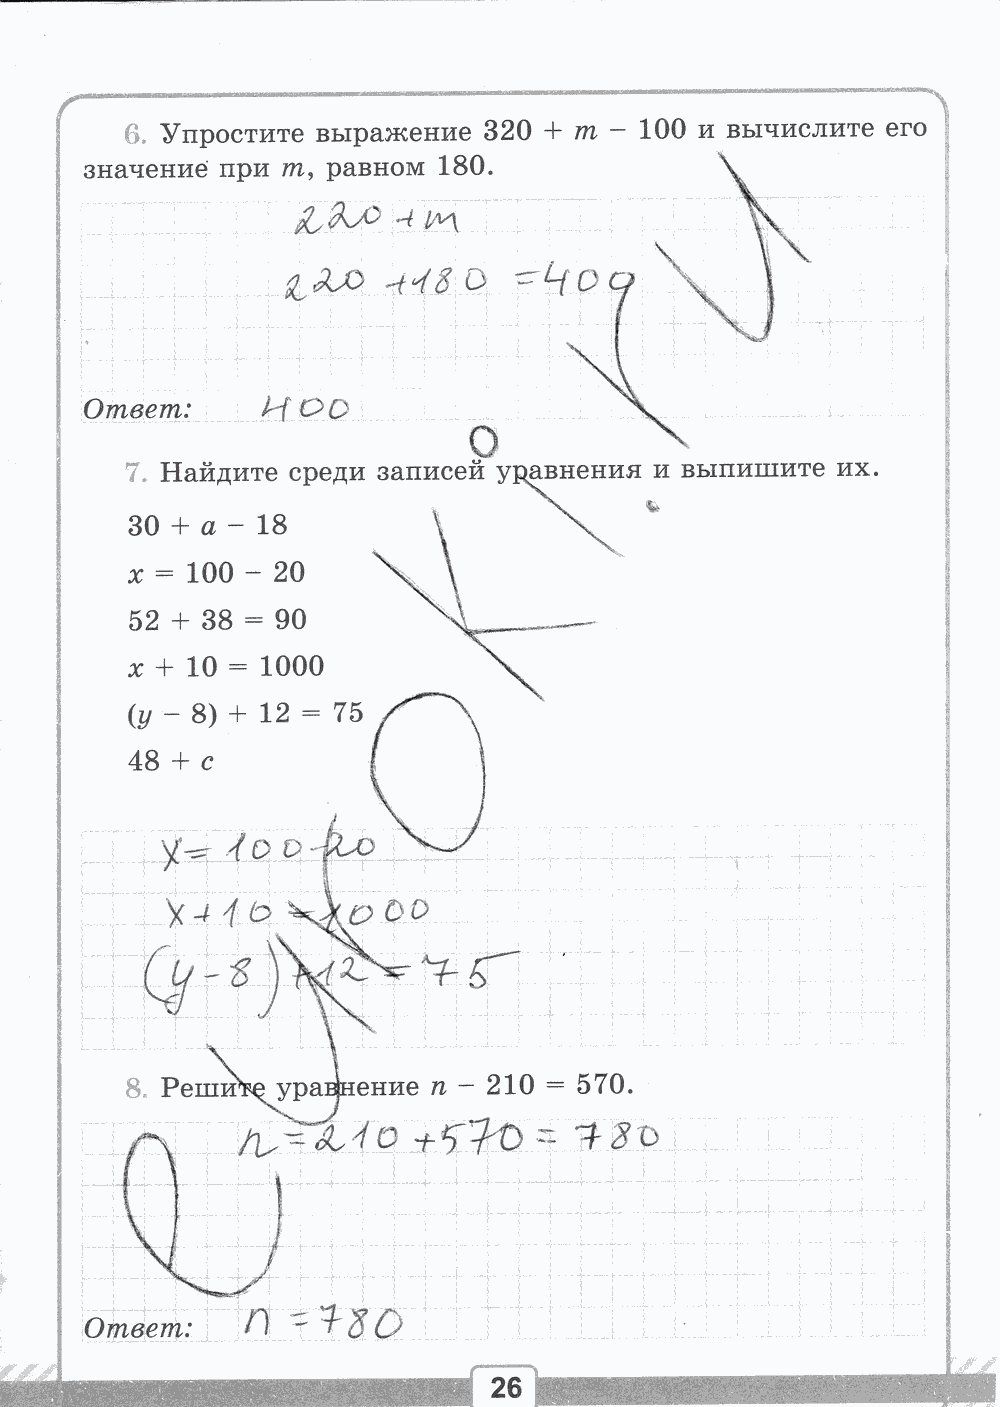 6. Упростите выражение 320 + m − 100 и вычислите его
значение при m, равном 180.
220 + m
220 + 180 = 400
Ответ: 400
7. Найдите среди записей уравнения и выпишите их.
30 + a − 18
x = 100 − 20
52 + 38 = 90
x + 10 = 1000
(y − 8) + 12 = 75
48 + c
x = 100 - 20
x + 10 = 1000
(y - 8) + 12 = 75
8. Решите уравнение n − 210 = 570.
n = 210 + 570 = 780
Ответ: n = 780
26